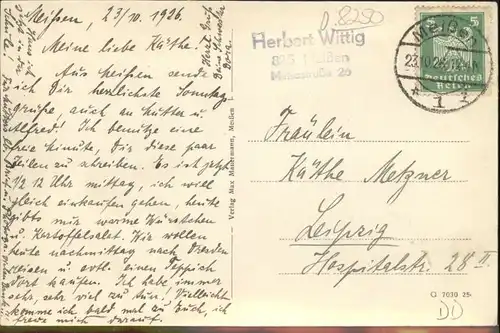 Meißen, 23/10. 1926.
Meine liebe Käthe!
Aus Meißen sende
ich Dir herzlichste Sonntag
grüße, auch an Mutter u.
Alfred! Ich benütze eine
freie Minute, Dir diese paar
Zeilen zu schreiben. Es ist jetzt
1/2 12 Uhr mittag, ich will
gleich einkaufen gehen, heute
gibts mir warme Würstchen
u. Kartoffelsalat. Wir wollen
heute nachmittag nach Dresden
reisen u. evtl. einen Teppich
dort kaufen. Ich habe immer
sehr, sehr viel zu tun! Vielleicht
komme ich bald mal zu Euch, ich
freue mich darauf.
Herzl. Gruß
Deine Schwester
Dora.
Verlag Max Mastermann, Meißen
8250
Herbert Wittig
Meißen
MEISSEN
23.10.26
1
5
5
Deutsches
Reich
Fräulein
Käthe Metzner
Leipzig
Hospitalstr. 28 II
G 7030 25.
DD